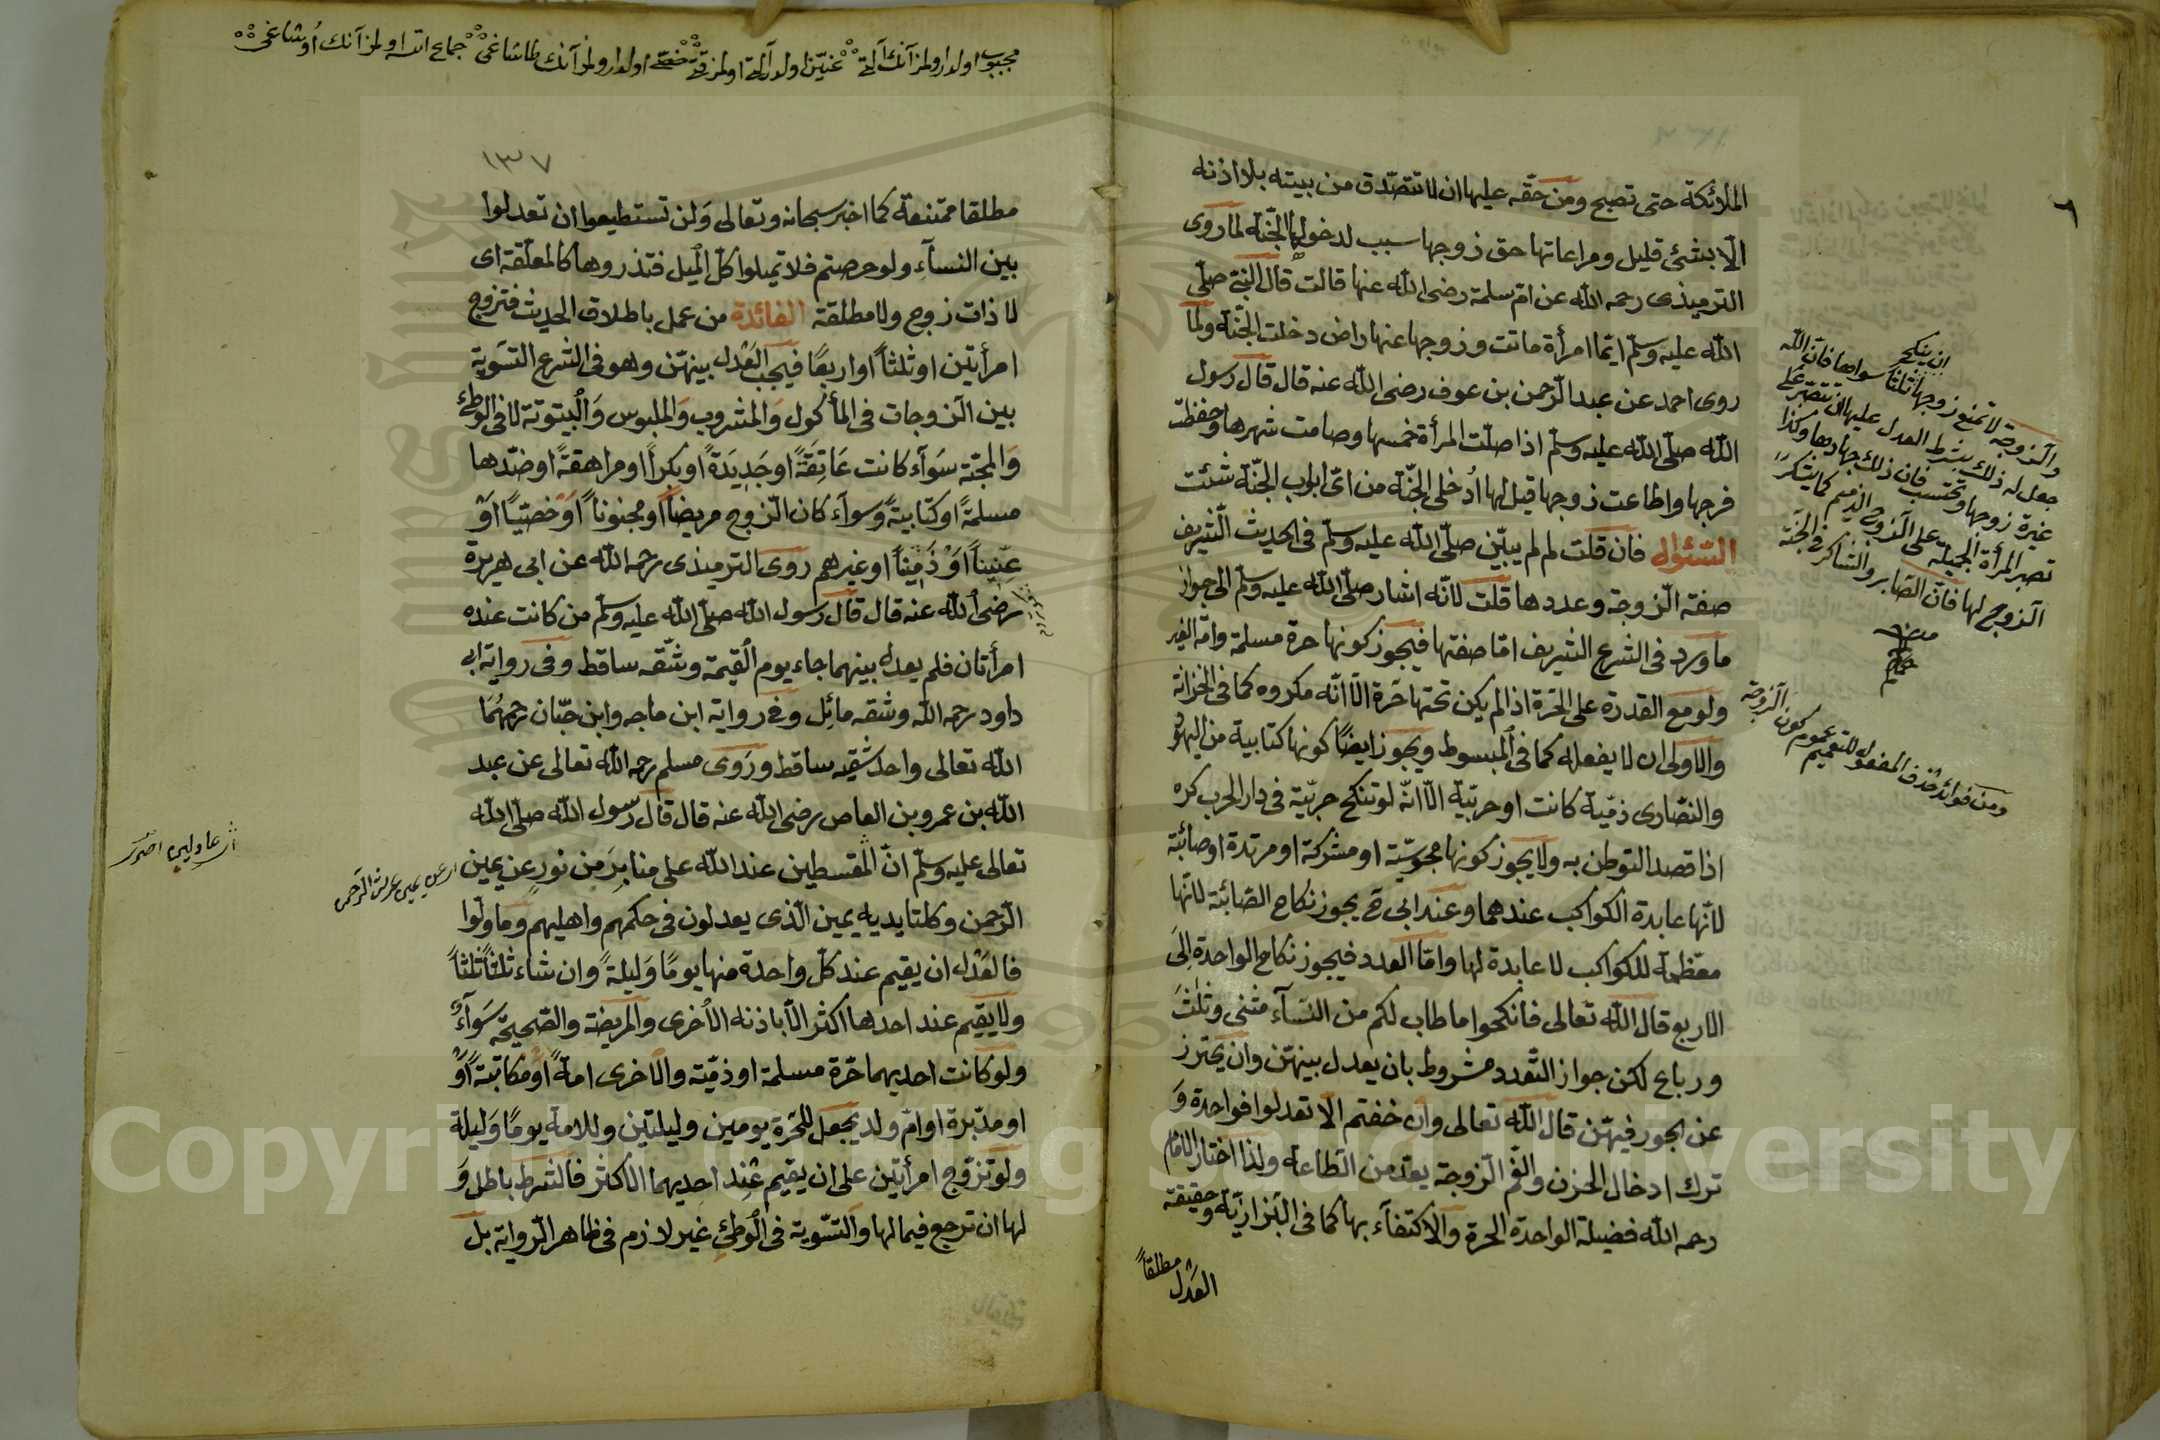 الملائكة حتى تصبح ومن حقّه عليها ان لا تتصّدق من بيته بلا اذنه
الّا بشئ قليل ومراعاتها حق زوجها سبب لدخولها الجنّة لما روى
الترميذى رحمه الله عن امّ سلمة رضى الله عنها قالت قال النبىّ صلّى
الله عليه وسلّم ايّما امرأة ماتت وزوجها عنها راض دخلت الجنّة ولما
روى احمد عن عبد الرّحمن بن عوف رضى الله عنه قال قال رسول
الله صلّى الله عليه وسلّم اذا صلّت المرأة خمسها وصامت شهرها وحفظت
فرجها واطاعت زوجها قيل لها اُدخلى الجنّة من اىّ ابواب الجنّة شئت
السّئوال فان قلت لم لم يبيّن صلّى الله عليه وسلّم فى الحديث الشّريف
صفة الزّوجة وعددها قلت لانّه اشار صلّى الله عليه وسلّم الى جواز
ما ورد فى الشرع الشريف امّا صفتها فيجوز كونها حرة مسلمة وامة الغير
ولو مع القدرة على الحّرة اذا لم يكن تحتها حّرة الّا انّه مكروه كما فى الخزانة
والاولى ان لا يفعله كما فى المبسوط ويجوز ايضًا كونها كتابية من اليهود
والنّصارى ذمّية كانت او حربّية الّا انّه لو تنكح حربّية فى دار الحرب كره
اذا قصد التوطن به ولا يجوز كونها مجوسّية او مشركة او مرتدة او صائبة
لانّها عابدة الكواكب عندهما وعند ابى ح يجوز نكاح الصّائبة لانّها
معظّمة للكواكب لا عابدة لها وامّا العدد فيجوز نكاح الواحدة الى
الاربع قال الله تعالى فانكحوا ما طاب لكم من النّسآء مثنى وثلث
ورباع لكن جواز التّعدد مشروط بان يعدل بينهّن وان يحترز
عن الجور فيهّن قال الله تعالى وان خفتم الّا تعدلوا فواحدة وَ
ترك ادخال الحزن والغّم الزّوجة يعدّ من الطّاعة ولذا اختار الامام
رحمه الله فضيلة الواحدة الحرة والاكتفآء بها كما فى البّزازيّة وحقيقة
العَدْل مطلقاً
ان ينكح
والزّوجة لا تمنع زوجها ثلثا سواها فانّ الله
جعل له ذلك بشرط العدل عليها ان تصبر على
غيرة زوجها وتحتسب فان ذلك جهادها وكذا
تصبر المرأة الجميلة على الزّوج الذميم كما يشكر
الزّوج لها فانّ الصّابر والشاكر فى الجنّة
ومن فوائد حذف المفعول للتعميم عموم كون الزوجة
١٣٧
مطلقا ممتنعة كما اخبر سبحانه وتعالى وَلن تستطيعوا ان تعدلوا
بين النسآء ولو حرصتم فلا تميلوا كلّ الميل فتذروها كالمعلّقة اى
لا ذات زوج ولا مطلقة الفائدة من عمل باطلاق الحديث فتزوج
امرأتين او ثلثاً او اربعًا فيجب العَدْل بينهّن وهو فى الشرع التسَوِية
بين الزّوجات فى المأكول وَالمشروب وَالملبوس وَالبيتوتة لا فى الوطئ
وَالمحبّة سَوَآء كانت عَاتِقَةً او جَدِيدَةً او بكراً او مراهقةً او ضّدها
مسلمةً او كتابيةً وسوآء كان الزّوج مريضاً او مجنوناً اَوْ خصيّاً اَوْ
عِنّيناً اَوْ ذَمِيناً او غيرهم روى الترميذى رحمه الله عن ابى هريرة
رضى الله عنه قال قال رسول الله صلّى الله عليه وسلّم من كانت عنده
امرأتان فلم يعدل بينهما جاء يوم القيمة وشّقه ساقط وفى رواية ابى
داود رحمه الله وشقه مائِل وفى رواية ابن ماجه وابن حبّان رحمهُمَا
الله تعالى واحد شقيه ساقط ورَوى مسلم رحمه الله تعالى عن عبد
الله بن عمرو بن العاص رضى الله عنه قال قال رسول الله صلّى الله
تعالى عليه وسلّم انّ المقسطين عند الله على منابِرَ مِن نورٍ عن يمين
الرّحمن وكلتا يديه يمين الّذى يعدلون فى حكمهم واهليهم وما ولّوا
فالعَدْل ان يقيم عند كلّ واحدة منها يومًا وَليلةً وان شاء ثلثاً ثلثاً
ولا يقيم عند احدها اكثر الّا باذنه الاُخرى والمريضة والصّحيحة سَوَآءٌ
ولو كانت احديهما حّرة مسلمة او ذمّية والاُخرى امةً اَوْ مكاتبةً اَوْ
او مدّبرة او امّ ولد يجعل للحّرة يومين وليلتين وللامة يومًا وَليلة
ولو تزوّج امرأتين على ان يقيم عند احِديهما الاكثر فالشرط باطل وَ
لها ان ترجع فيما لها والتّسوية فى الوطئِ غير لازم فى ظاهر الرّواية بل
اى عن يمين عرش الرّحمن
Copyright © King Saud University
1957